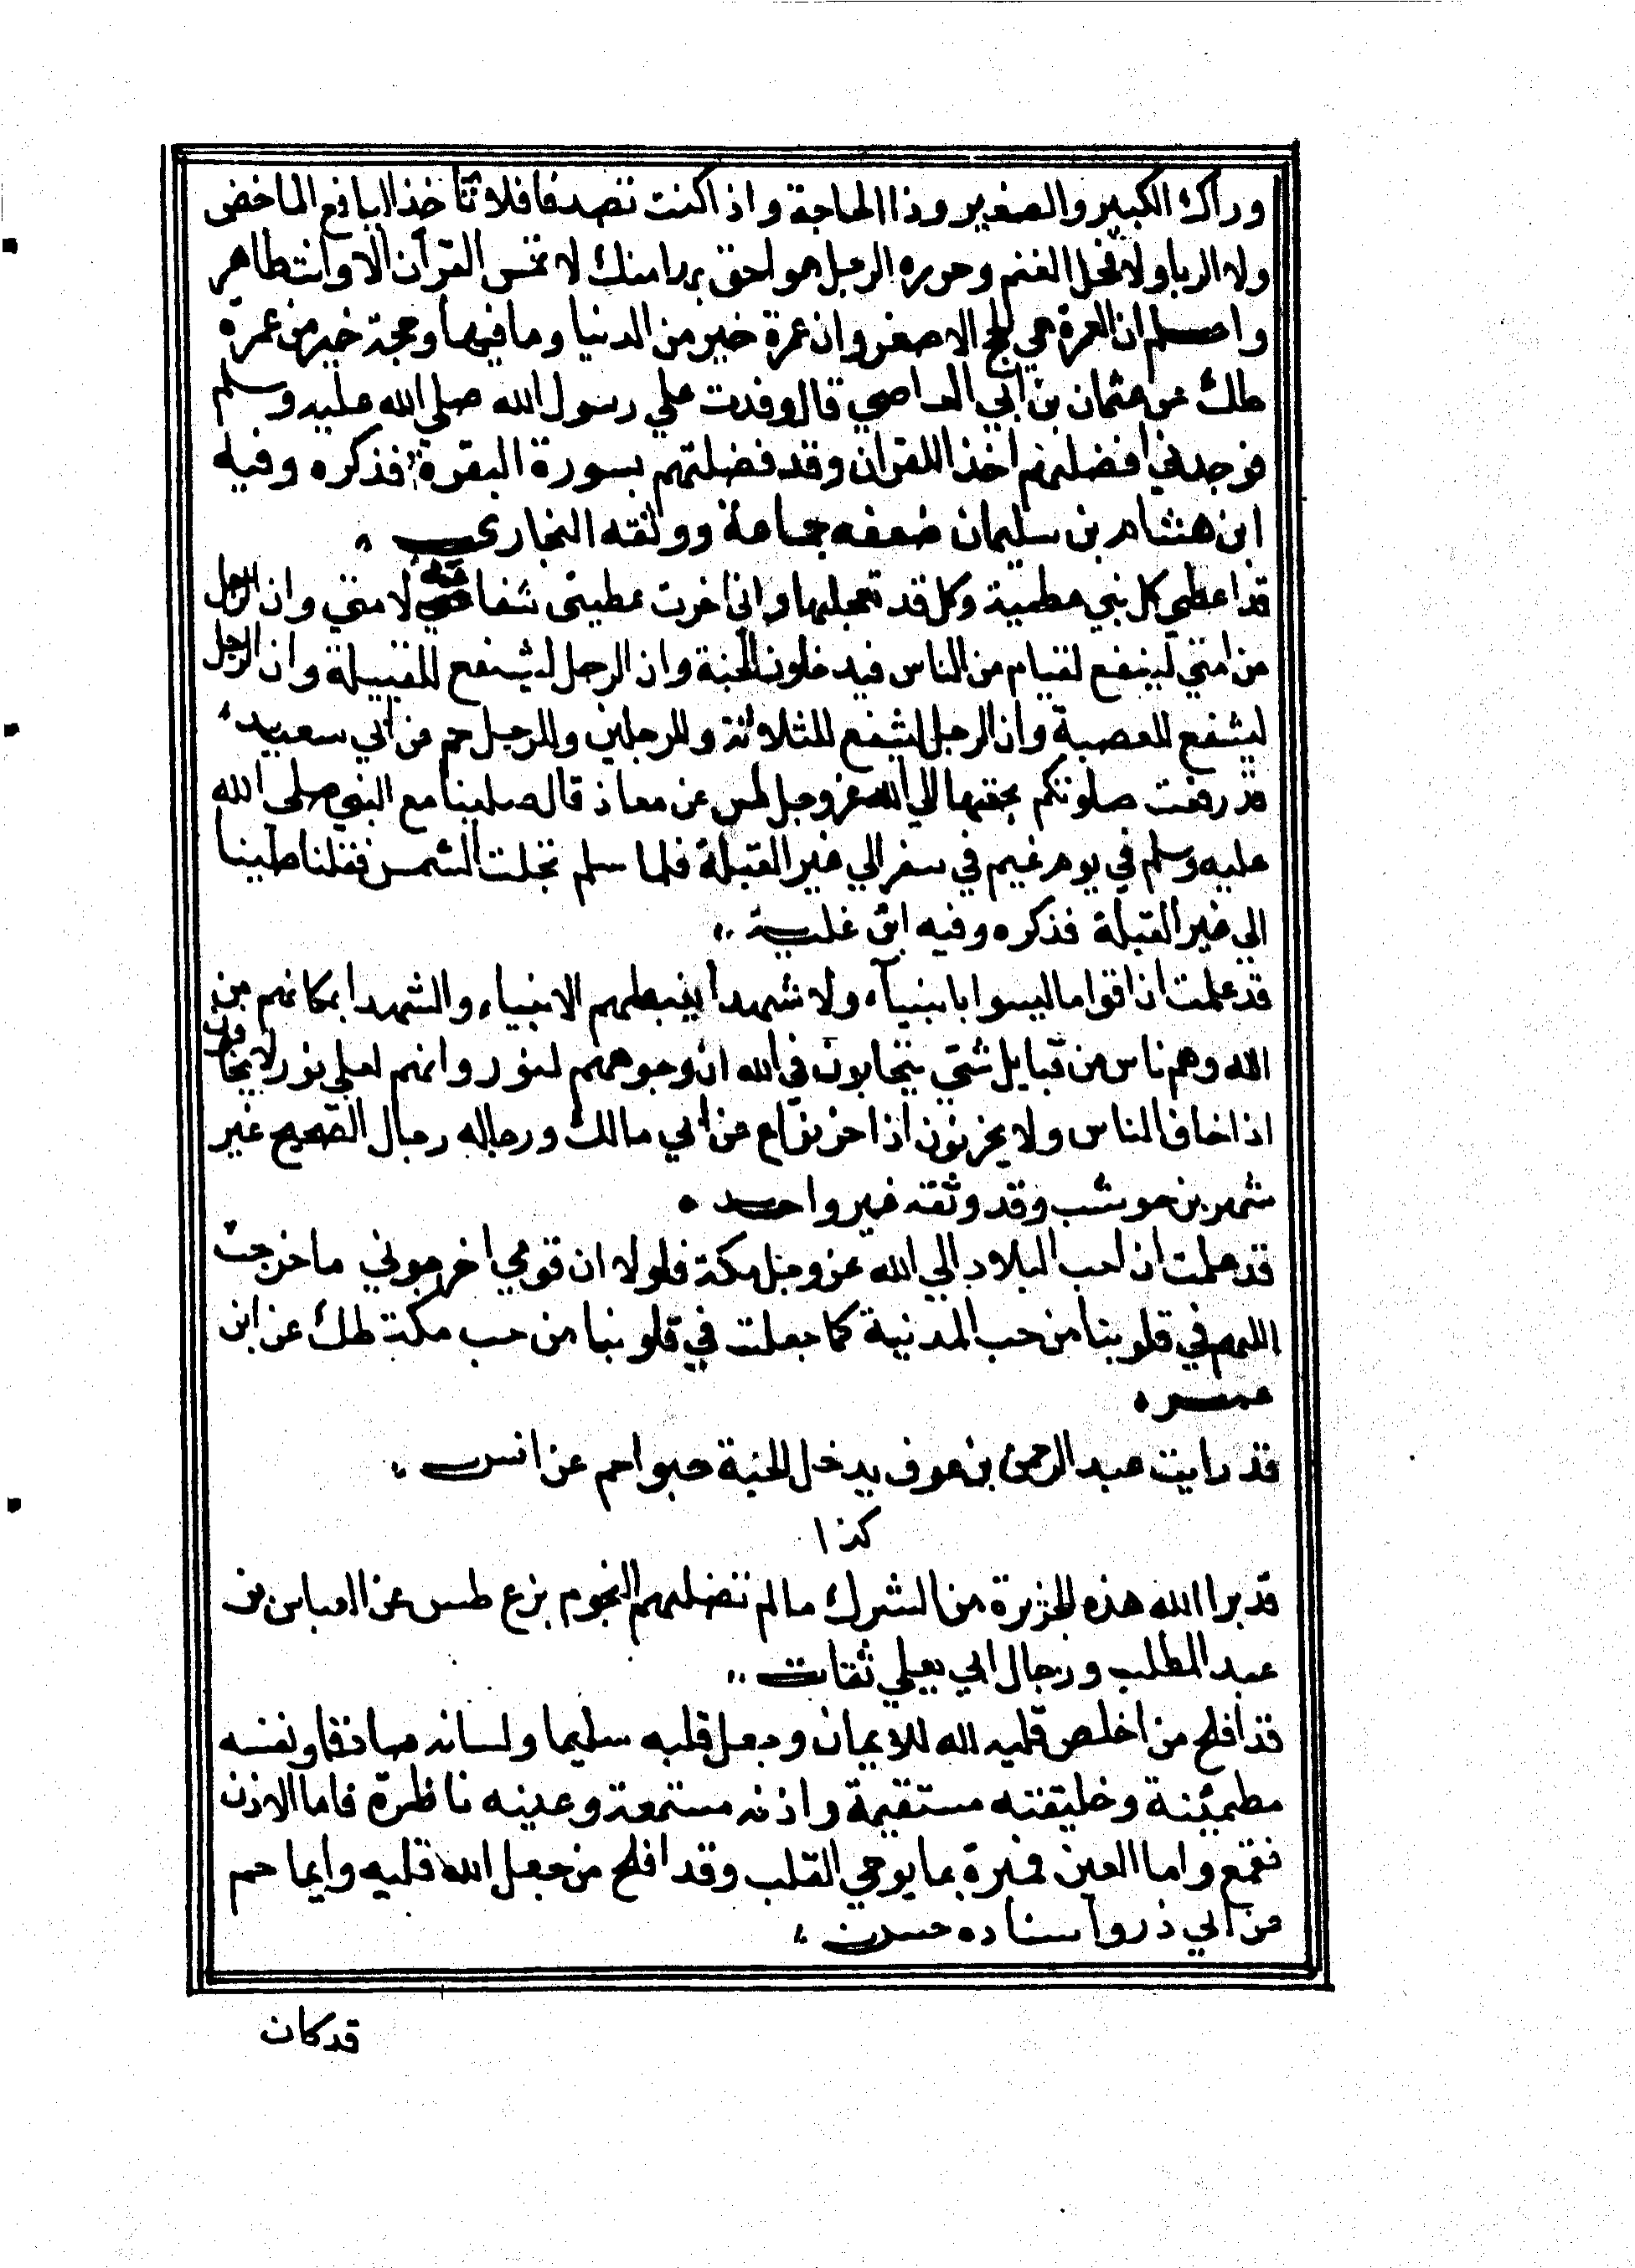 وراك الكبير والصغير وذا الحاجة واذا كنت تصدقا فلا تأخذ اليافع الماخض
ولا الربا ولا فحل الغنم وحوره الرجل هو احق بردا منك لا تمس القرآن الا وانت طاهر
واعلم ان العمرة هي الحج الاصغر وان عمرة خير من الدنيا وما فيها وحجة خير من عمرة
طك عن عثمان بن ابي العاصي قال وفدت علي رسول الله صلي الله عليه وسلم
فوجدني افضلهم اخذا للقران وقد فضلتهم بسورة البقرة فذكره وفيه
ابن هشام بن سليمان ضعفه جماعة ووثقه البخاري
قد اعطي كل نبي عطية وكل قد تعجلها واني اخرت عطيتى شفاعتي لامتي وان الرجل
من امتي ليشفع لقيام من الناس فيدخلون الجنة وان الرجل ليشفع للقبيلة وان الرجل
ليشفع للعصبة وان الرجل ليشفع للثلاثة وللرجلين وللرجل حم عن ابي سعيد
قد رفعت صلوتكم بحقها الي الله عز وجل طس عن معاذ قال صلينا مع النبي صلى الله
عليه وسلم في يوم غيم في سفر الي غير القبلة فلما سلم تجلت الشمس فقلنا صلينا
الي غير القبلة فذكره وفيه ابن علبة
قد علمت ان اقواما ليسوا بانبيآء ولا شهدا يغبطهم الانبياء والشهدا بمكانهم من
الله وهم ناس من قبايل شتي يتحابون في الله ان وجوههم لنور وانهم لعلي نور لا يخافون
اذا خاف الناس ولا يحزنون اذا حزنوا ع عن ابي مالك ورجاله رجال الصحيح غير
شهر بن حوشب وقد وثقه غير واحد
قد علمت ان احب البلاد الي الله عز وجل مكة فلولا ان قومي اخرجوني ما خرجت
اللهم في قلوبنا من حب المدنية كما جعلت في قلوبنا من حب مكة طك عن ابن
عمر
قد رايت عبد الرحمن بن عوف يدخل الجنة حبوا حم عن انس
كذا
قد برا الله هذه الجزيرة من الشرك ما لم تضلهم النجوم بزع طس عن العباس بن
عبد المطلب ورجال ابي يعلي ثقات
قد افلح من اخلص قلبه لله للايمان وجعل قلبه سليما ولسانه صادقا ونفسه
مطمئنة وخليقته مستقيمة واذنه مستمعة وعينه ناظرة فاما الاذن
فقمع واما العين فمبرة بما يوحي القلب وقد افلح من جعل الله قلبه وايما حم
عن ابي ذر واسناده حسن
قد كان